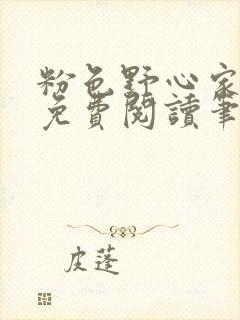 粉色野心家
免費閱讀筆
皮蓬